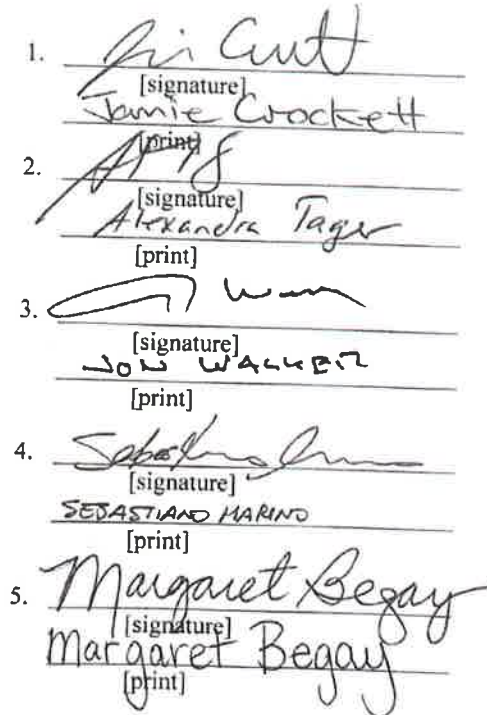 1.
[signature]
Jamie Crockett
[print]
2.
[signature]
Alexandra Tager
[print]
3.
[signature]
JON WALKER
[print]
4.
[signature]
SEBASTIANO MARINO
[print]
5. Margaret Begay
[signature]
Margaret Begay
[print]